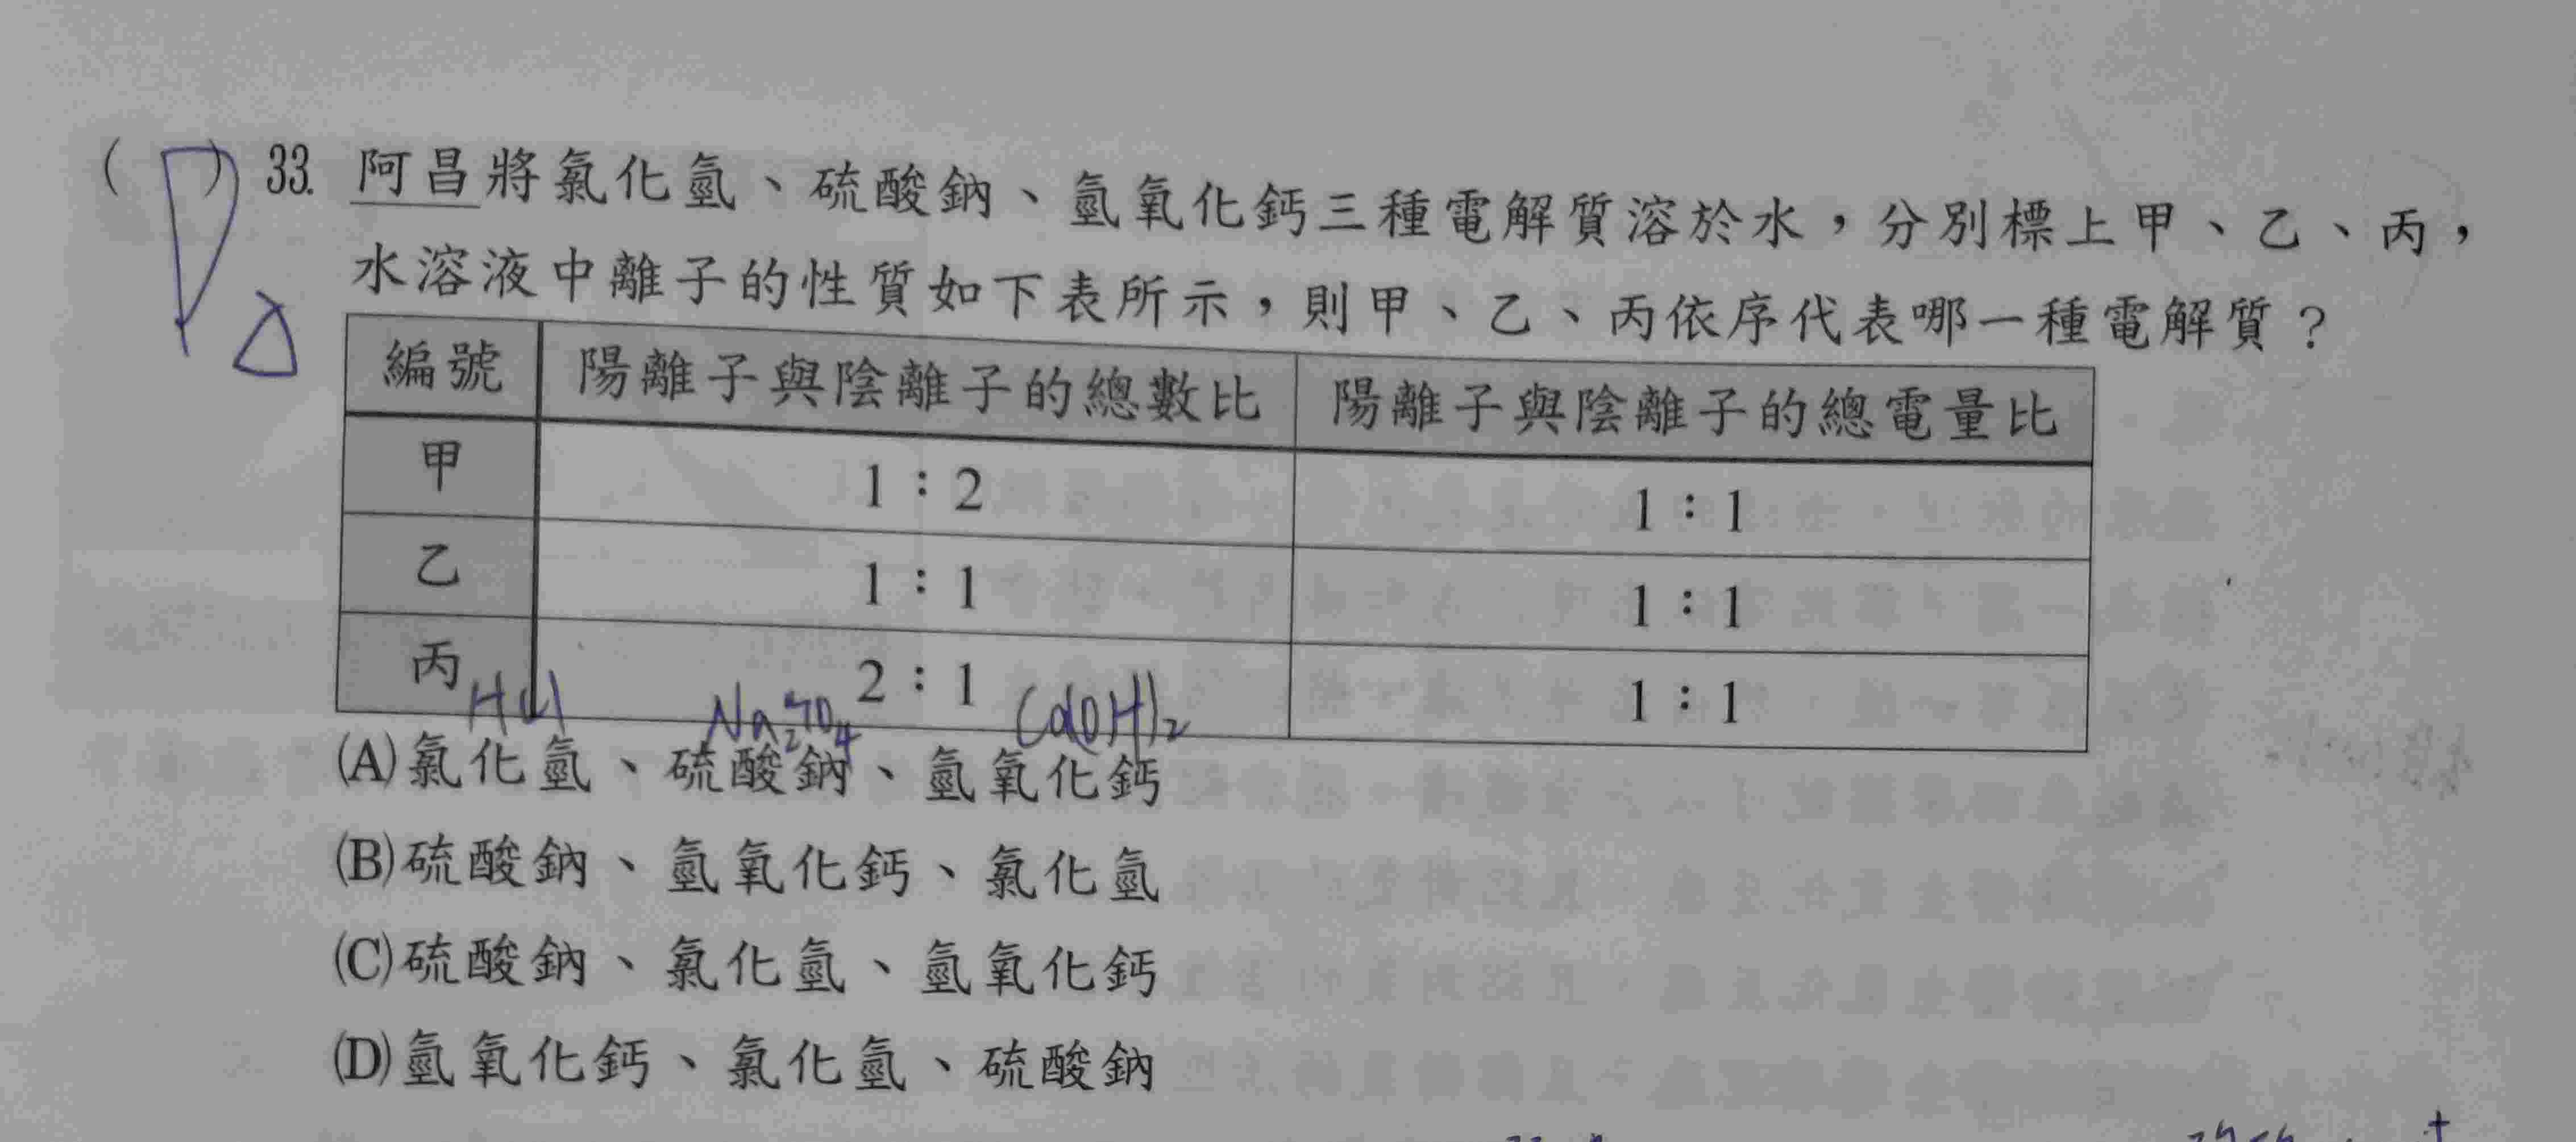 ( D ) 33. 阿昌將氯化氫、硫酸鈉、氫氧化鈣三種電解質溶於水，分別標上甲、乙、丙，
水溶液中離子的性質如下表所示，則甲、乙、丙依序代表哪一種電解質？
編號 陽離子與陰離子的總數比 陽離子與陰離子的總電量比
甲 1：2 1：1
乙 1：1 1：1
丙 2：1 1：1
HCl Na₂SO₄ Ca(OH)₂
(A)氯化氫、硫酸鈉、氫氧化鈣
(B)硫酸鈉、氫氧化鈣、氯化氫
(C)硫酸鈉、氯化氫、氫氧化鈣
(D)氫氧化鈣、氯化氫、硫酸鈉